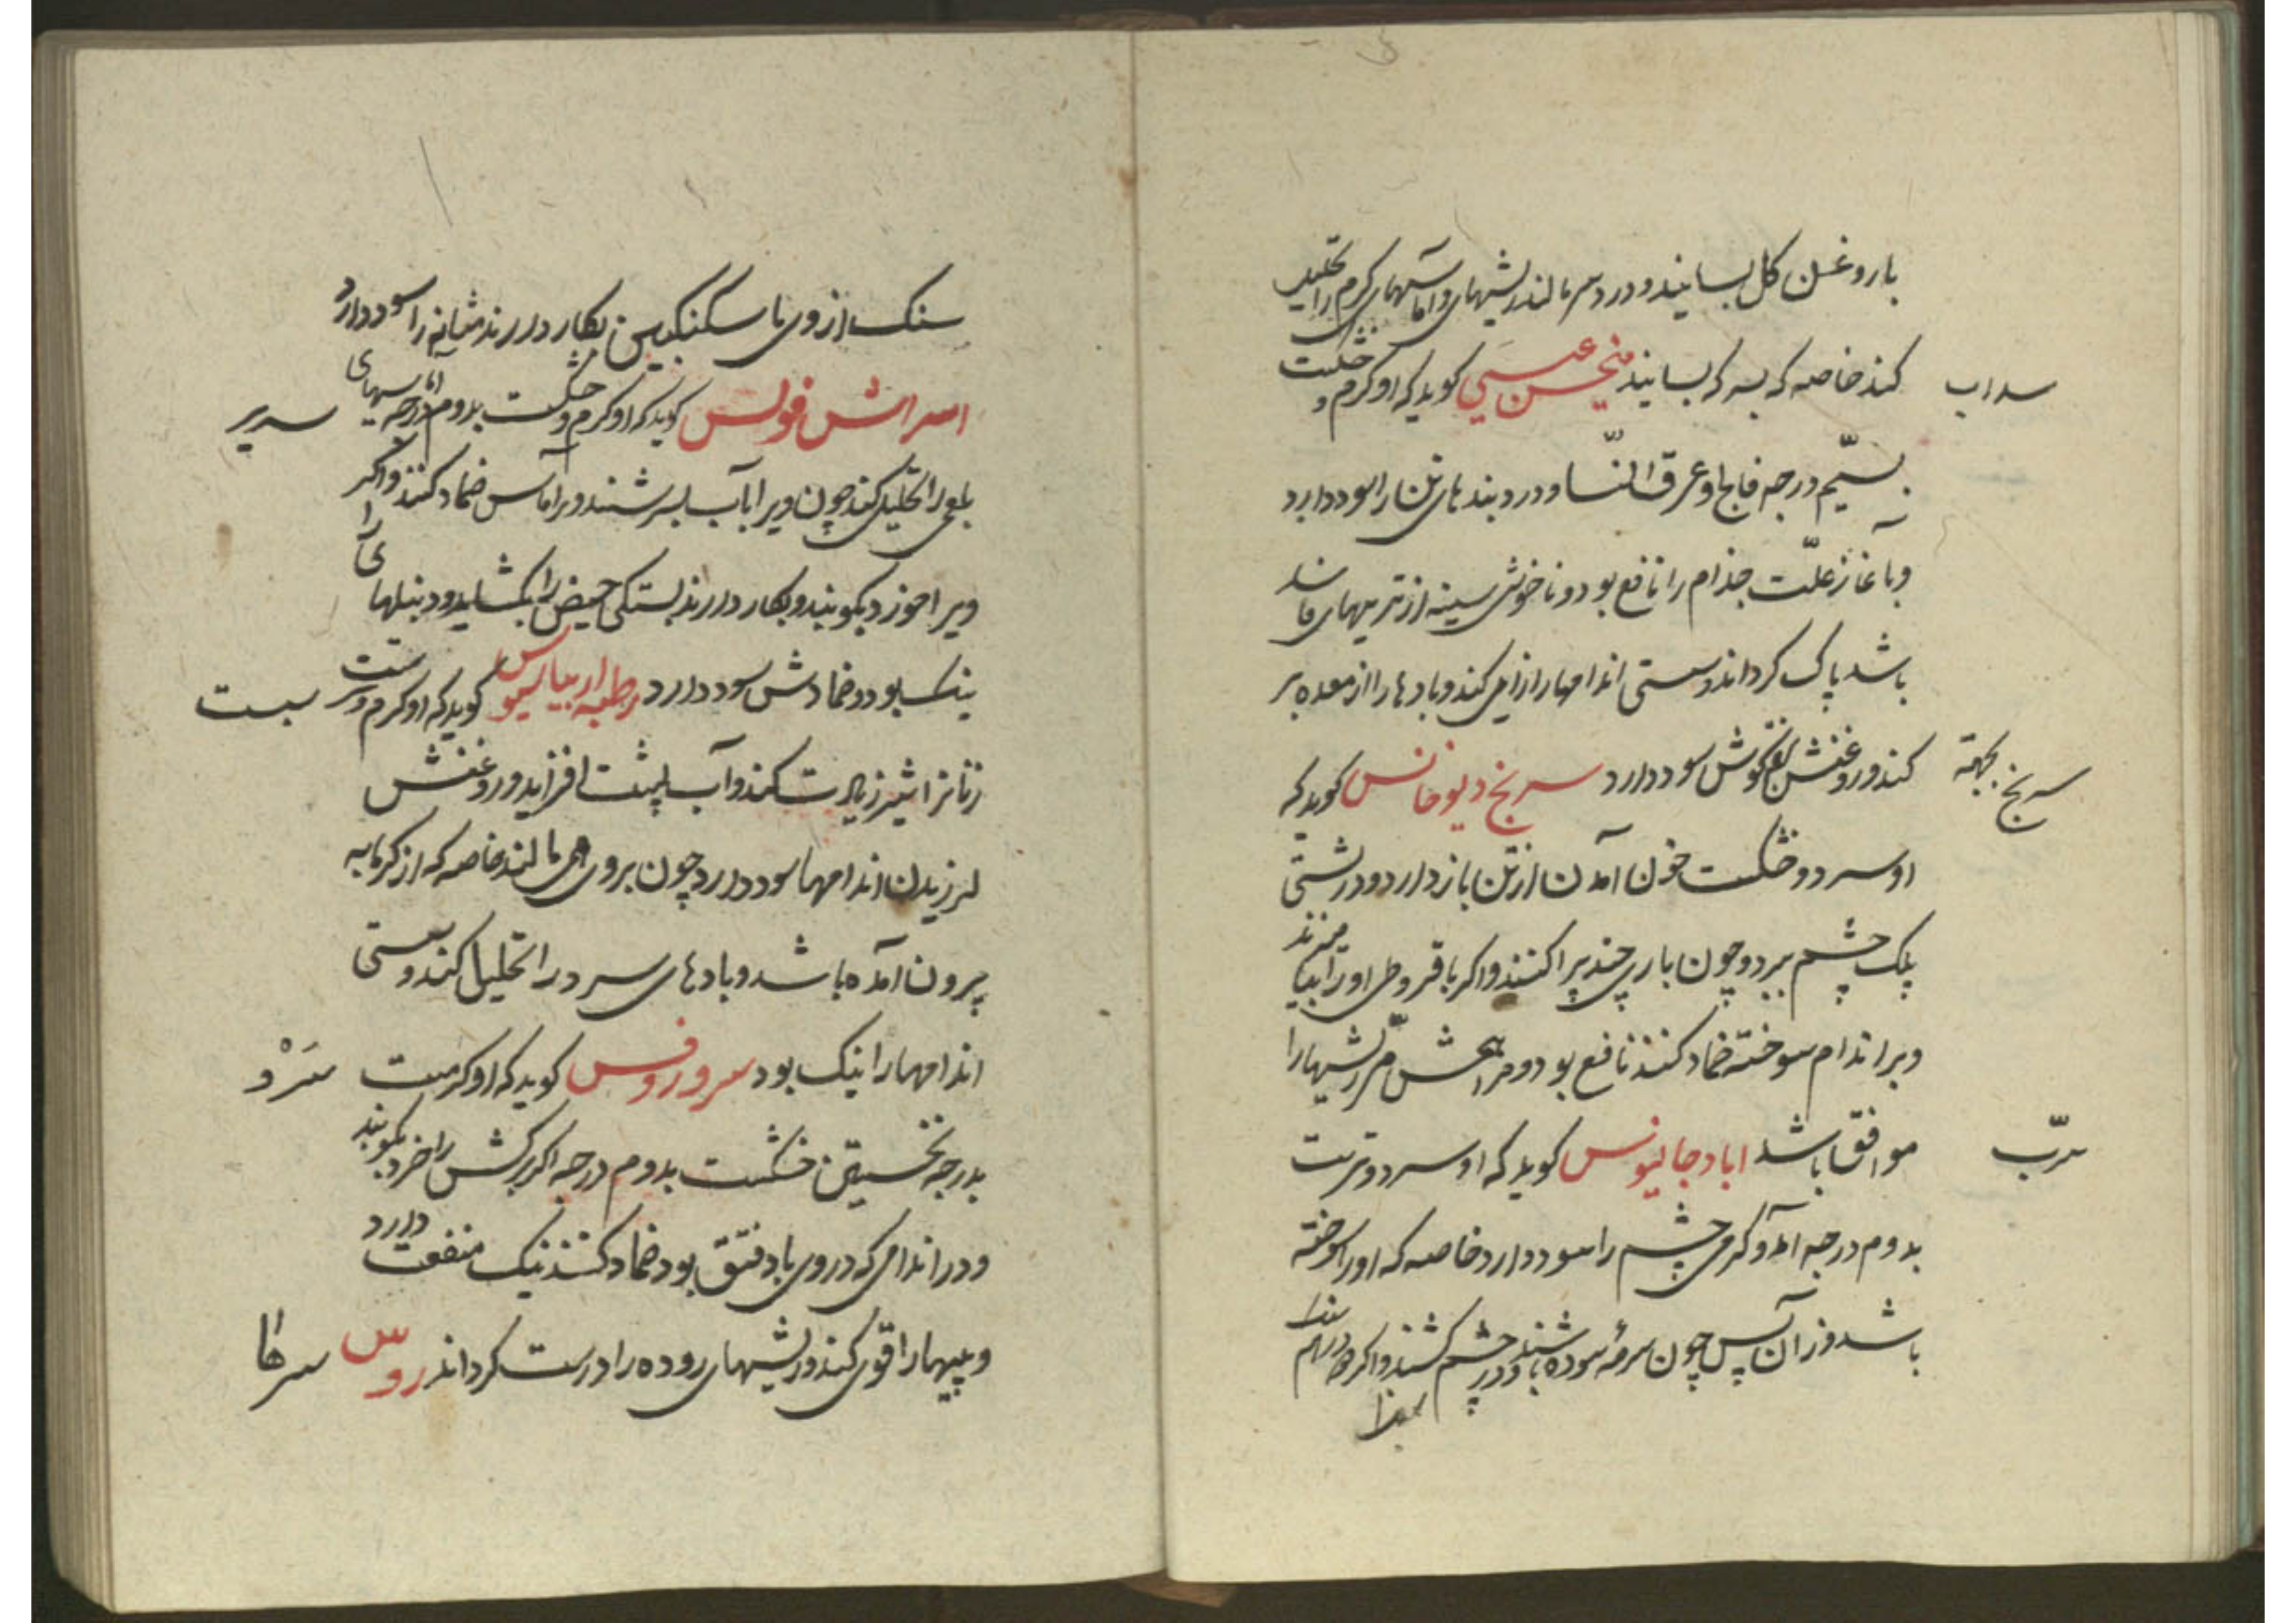 با روغن کل بسایند و در دسر مالند ریشهای و اماسهای کرم را تحلیل
کند خاصه که بسرکه بسایند منحسن عیسی کوید که او کرم و خشکست
سداب
بسیّم درجه فالج و عرق النّسا و درد بندهای تن را سود دارد
و بآغاز علّت جذام را نافع بود و ناخوشی سینه از تریهای فاسد
باشد پاک کرداند و سستی اندامها را زایل کند و بادها را از معده بر
کند و روغنش کوش سود دارد سرنج دیوخانس کوید که
سرنج
او سرد و خشکست خون آمدن از تن باز دارد و درشتی
پلک چشم ببرد و چون باری چند پراکنند و اکر با قروطی او را بیامیزند
و بر اندام سوخته ضماد کنند نافع بود و مر ریشها را
موافق باشد اباد جالینوس کوید که او سرد و ترست
سرّب
بدوم درجه آمد و کرمی چشم را سود دارد خاصه که او را سوخته
باشد وزان پس چون سرمه سوده باشند و در چشم کشند و اکر
سنک از وی با سکنکبین بکار دارند مثانه را سود دارد
اسراش فولس کوید که او کرم و خشکست بدوم درجه اماسهای
سریر
بلغمی را تحلیل کند چون ویرا بآب بسرشند و بر آماس ضماد کنند و اکر
ویرا خورد بکوبند و بکار دارند بستکی حیض را بکشاید و دنبلهای را
نیک بود و ضمادش سود دارد رطبه اریباسیوس کوید که او کرم و ترست
سبست
زنانرا شیر زیادت کند و آب پشت افزاید و روغنش
لرزیدن اندامها سود دارد چون بروی می مالند خاصه که از کرمابه
بیرون آمده باشد و بادهای سرد را تحلیل کند و سستی
اندامها را نیک بود سرو روفس کوید که او کرمست
سَرْو
بدرجه نخستین خشکست بدوم درجه اکر برکش را خرد بکوبند
و در اندامی که در وی باد فتق بود ضماد کنند نیک منفعت دارد
و پیها را قوی کند و ریشهای روده را درست کرداند روس
سرطا